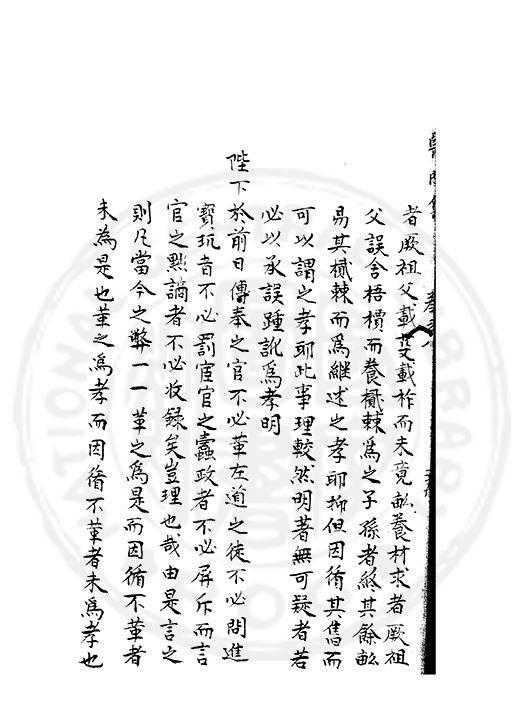 者厥祖父載芟載柞而未竟畝養材求者厥祖
父誤舍梧檟而養樲棘爲之子孫者終其餘畝
易其樲棘而爲繼述之孝耶抑但因循其舊而
可以謂之孝耶此事理較然明著無可疑者若
必以承誤踵訛爲孝明
陛下於前日傳奉之官不必革左道之徒不必問進
寳玩者不必罰宦官之蠹政者不必屏斥而言
官之點謫者不必收錄矣豈理也哉由是言之
則凡當今之弊一一革之爲是而因循不革者
未為是也革之爲孝而因循不革者未爲孝也